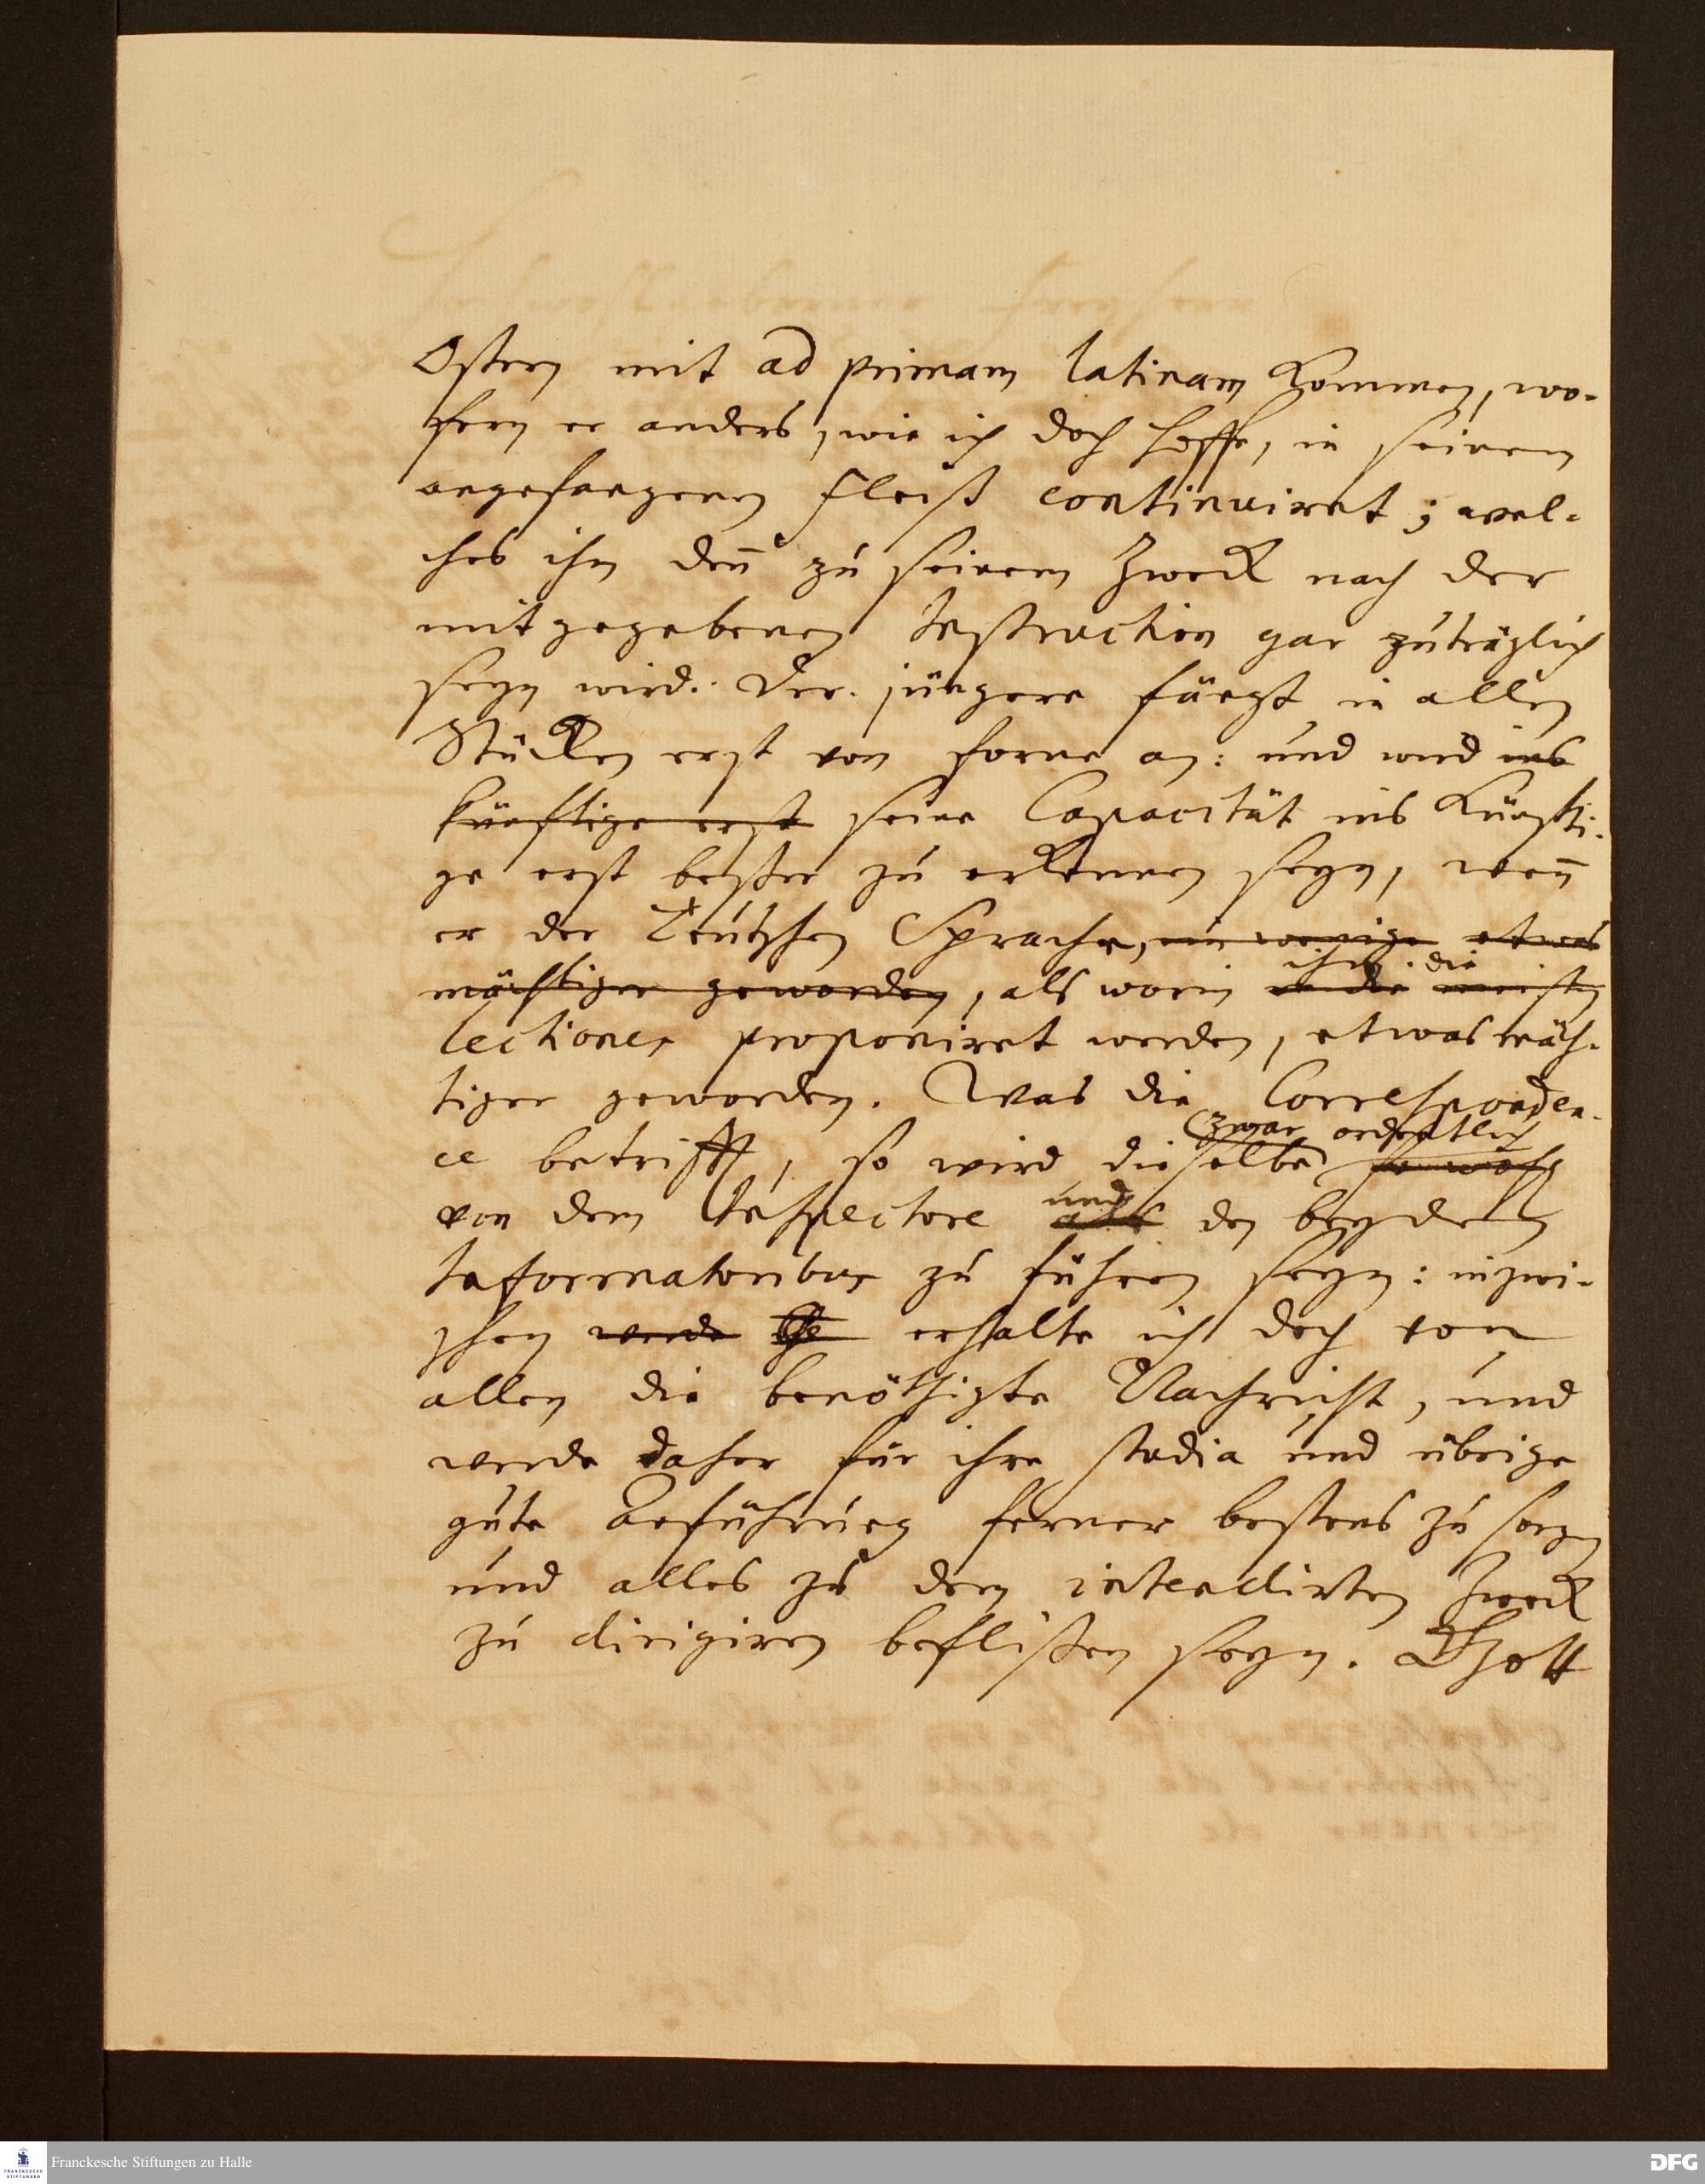 Ostern mit ad primam latinam kommen, wo-
fern er anders, wie ich doch hoffe, in seinem
angefangenen Fleiß continuiret; wel-
ches ihm deñ zu seinem Zweck nach der
mitgegebenen Instruction gar zuträglich
seyn wird. Der jüngere fängt in allen
Stücken erst von forne an: und wird ins
künftige erst seine Capacität ins Künfti-
ge erst beßer zu erkennen seyn, weñ
er der Teutschen Sprache, ein wenige etwas
ihm die
mächtiger geworden, als worin in die meisten
lectiones proponiret werden, etwas mäch-
tiger geworden. Was die Corresponden-
zwar ordentlich
ce betrifft, so wird dieselbe
und
von dem Inspectore als den beyden
Informatoribus zu führen seyn: inzwi-
schen werde erhalte ich doch von
allen die benöthigte Nachricht, und
werde daher für ihre studia und übrige
gute Anführung ferner bestens zu sorgen
und alles zu dem intendirten Zweck
zu dirigiren beflißen seyn. Gott
Franckesche Stiftungen zu Halle
FRANCKESCHE
STIFTUNGEN
DFG